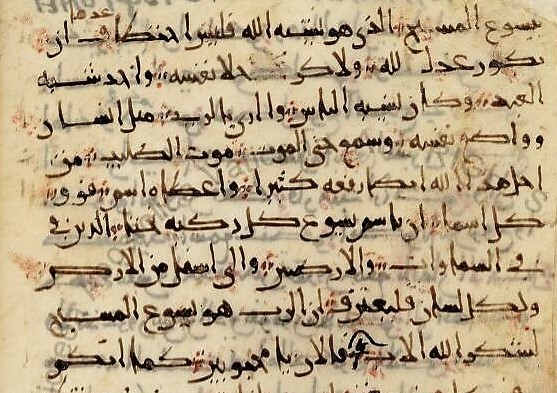 يسوع المسيح الذي هو شبه الله فليس اختطاف ان
يكون عدل الله ولاكن خلا نفسه واخذ شبه
العبد وكان لشبه الناس والري بالزي مثل انسان
وواضع نفسه وسمع حتى الموت موت الصليب من
اجل هذا الله ايضا رفعه كثيرا واعطاه اسم يفوق
كل اسما ان باسم يسوع كل ركبة تجثا الذين في
في السماوات والارضين والى اسفل من الارض
ولكل لسان فليعترف ان الرب هو يسوع المسيح
لتشكوا الله الاب فالان يا محبوبين كما انكم